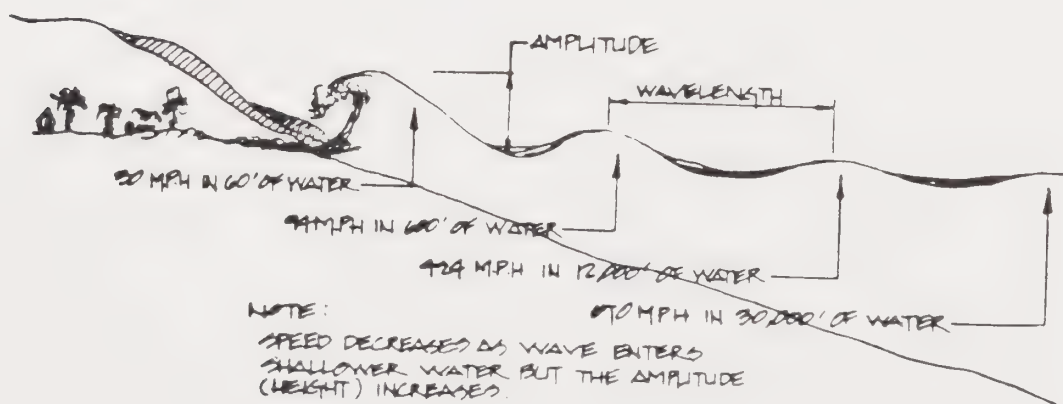 AMPLITUDE
WAVELENGTH
30 M.P.H IN 60' OF WATER
94 M.P.H IN 600' OF WATER
424 M.P.H IN 12,000' OF WATER
670 MPH IN 30,000' OF WATER
NOTE:
SPEED DECREASES AS WAVE ENTERS
SHALLOWER WATER BUT THE AMPLITUDE
(HEIGHT) INCREASES.